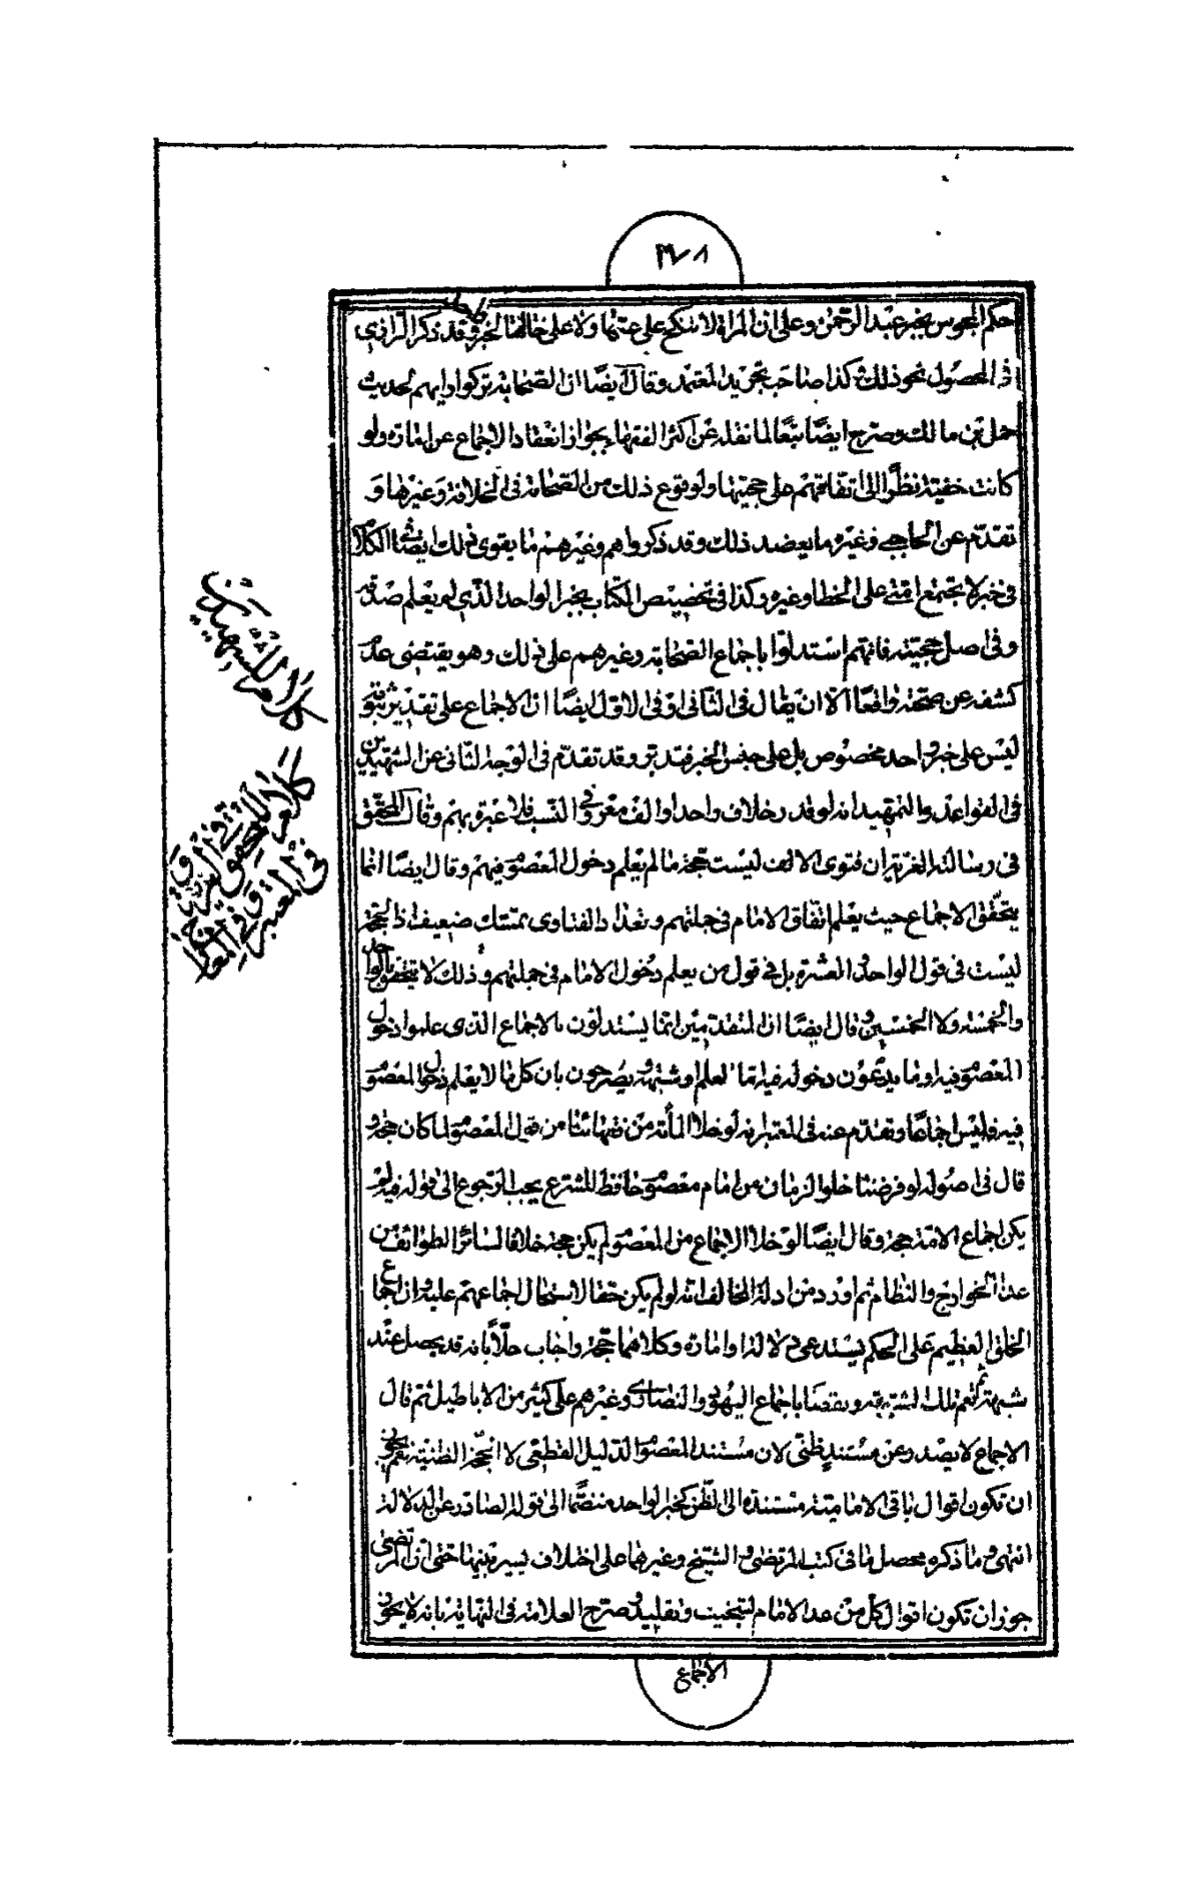 حكم المجوس بخبر عبد الرحمن وعلى ان المراة لا تنكح على عمتها ولا على خالتها لخبر وقد ذكر الرازي
في المحصول نحو ذلك وكذا صاحب تجريد المعتمد وقال ايضا ان الصحابة تركوا رايهم لحديث
حمل بن مالك وصرح ايضا تبعا لما نقله عن اكثر الفقهاء بجواز انعقاد الاجماع عن امارة ولو
كانت خفية نظرا الى اتفاقهم على حجيتها ولوقوع ذلك من الصحابة في الخلافة وغيرها و
تقدم عن الحاجبي وغيره ما يعضد ذلك وقد ذكروا هم وغيرهم ما يقوى ذلك ايضا في الكلام
في خبر لا تجتمع امتي على الخطا وغيره وكذا في تخصيص الكتاب بخبر الواحد الذي لم يعلم صدقه
وفي اصل حجيته فانهم استدلوا باجماع الصحابة وغيرهم على ذلك وهو يقتضى عدم
كشفه عن صحته واقعا الا ان يقال في الثاني او في الاول ايضا ان الاجماع على تقدير ثبوته
ليس على خبر واحد مخصوص بل على جنس الخبر فتدبر وقد تقدم في الوجه الثاني عن الشهيدين
في القواعد والتمهيد انه لو قدر خلاف واحد او الف معروفي النسب فلا عبرة بهم وقال المحقق
في رسالته العزية ان فتوى الالف ليست حجة ما لم يعلم دخول المعصوم فيهم وقال ايضا انما
يتحقق الاجماع حيث يعلم اتفاق الامام في جملتهم وبغداد الفتاوى تمسك ضعيف اذ الحجة
ليست في قول الواحد والعشرة بل في قول من يعلم دخول الامام في جملتهم وذلك لا يتحقق بالواحد
والخمسة ولا الخمسين وقال ايضا ان المتقدمين انما يستدلون بالاجماع الذي علموا دخول
المعصوم فيه او ما يدعون دخوله فيه اما لعلم او شبهة يصرحون بان كل ما لا يعلم دخول المعصوم
فيه فليس اجماعا وتقدم عنه في المعتبر انه لو خلا المأة من فقهائنا من قول المعصوم لما كان حجة و
قال في اصوله لو فرضنا خلو الزمان من امام معصوم حافظ للشرع يجب الرجوع الى قوله فيه لم
يكن اجماع الامة حجة وقال ايضا لو خلا الاجماع من المعصوم لم يكن حجة خلافا لسائر الطوائف من
عدا الخوارج والنظام ثم اورد من ادلة المخالف انه لو لم يكن حقا لاستحال اجماعهم عليه لان اجماع
الخلق العظيم على الحكم يستدعي دلالة او امارة وكلاهما حجة واجاب حلا بانه قد يحصل عند
شبهة تعمم تلك الشبهة ونقضا باجماع اليهود والنصارى وغيرهم على كثير من الاباطيل ثم قال
الاجماع لا يصدر عن مستند ظني لان مستند المعصوم الدليل القطعي لا الحجة الظنية نعم يجوز
ان تكون اقوال باقي الامامية مستندة الى الظن كخبر الواحد منضما الى قوله الصادر عن الدلالة
انتهى وما ذكره محصل ما في كتب المرتضى والشيخ وغيرهما على اختلاف يسير بينها حتى ان المرتضى
جوز ان تكون اقوال كل من عدا الامام لتبخيت وتقليد وصرح العلامة في النهاية بانه لا يجوز
الاجماع
كلام الشهيدين
كلام المحقق
في المعتبر